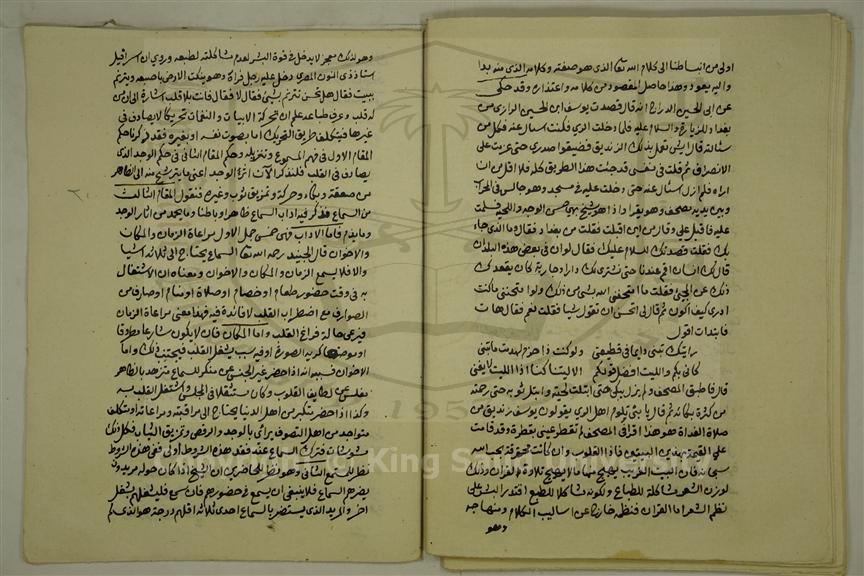 اولى من انبساطنا الى كلام الله تعا الذى هو صفته وكلامه الذى منه بدا
واليه يعود وهذا حاصل المقصود من كلامه واعتذاره وقد حكى
عن ابى الحسين الدراج انه قال قصدت يوسف ابن الحسين الرازى من
بغداد للزيارة والسلام عليه فلما دخلت الرى فكنت اسال عنه فكل من
سالته قال ايش تعمل بذلك الزنديق فضيقوا صدرى حتى عزمت على
الانصراف ثم قلت فى نفسى قد جئت هذا الطريق كله فلا اقل من ان
اراه فلم ازل اسئال عنه حتى دخلت عليه فى مسجد وهو جالس فى المحراب
وبين يديه مصحف وهو يقرا واذا هو شيخ بهى حسن الوجه واللحية فسلمت
عليه فاقبل على وقال من اين اقبلت فقلت من بغداد فقال وما الذى جاء
بك فقلت قصدتك للسلام عليك فقال لو ان فى بعض هذه البلدان
قال لك انسان اقم عندنا حتى نشترى لك دارا وجارية كان يقعدك
ذلك عن المجئ فقلت ما امتحننى الله بشى من ذلك ولو امتحننى ما كنت
ادرى كيف اكون ثم قال لى اتحسن ان تقول شيا فقلت نعم فقال هات
فابتدات اقول
رايتك تبنى دايما فى قطيعتى ولو كنت ذا حزم لهدمت ما تبنى
كانى بكم والليت افضل قولكم الا ليتنا كنا اذا الليت لا يغنى
قال فاطبق المصحف ولم يزل يبكى حتى ابتلت لحيته وابتل ثوبه حتى رحمته
من كثرة بكائه ثم قال يا بنى تلوم اهل الرى يقولون يوسف زنديق من
صلاة الغداة هو هذا اقرا فى المصحف لم تقطر عينى بقطرة وقد قامت
على القيمة بهذين البيتين فاذا القلوب وان كانت محترقة بحب الله
سبحانه فان البيت الغريب يهيج منها ما لا يهيج تلاوة القران وذلك
لوزن الشعر ومشاكلته للطباع ولكونه مشاكلا للطبع اقتدر البشر على
نظم الشعر اما القران فنظمه خارج عن اساليب الكلام ومنهاجه
وهو
وهو لذلك معجز لا يدخل فى قوة البشر لعدم مشاكلته لطبعه وروى ان اسرافيل
استاذ ذى النون المصرى دخل عليه رجل فراه وهو ينكت الارض باصبعه ويترنم
ببيت فقال هل تحسن تترنم بشى فقال لا فقال فانت بلا قلب اشارة الى ان من
له قلب وعرف طباعه علم ان تحركه الابيات والنغمات تحريكا لا يصادف فى
غيرها فيتكلف طريق التحريك اما بصوت نفسه او بغيره فقد ذكرنا حكم
المقام الاول فى فهم المسموع وتنزيله وحكم المقام الثانى فى حكم الوجد الذى
يصادف فى القلب فلنذكر الان اثر الوجد اعنى ما يترشح منه الى الظاهر
من صعقة وبكاء وحركة وتمزيق ثوب وغيره فنقول المقام الثالث
من السماع فذكر فيه اداب السماع ظاهرا وباطنا وما يحمد من اثار الوجد
وما يذم فاما الاداب فهى خمس جمل الاول مراعاة الزمان والمكان
والاخوان قال الجنيد رحمه الله تعا السماع يحتاج الى ثلاثة اشيا
والا فلا يسمع الزمان والمكان والاخوان ومعناه ان الاشتغال
به فى وقت حضور طعام او خصام او صلاة او صارف من
الصوارف مع اضطراب القلب لا فائدة فيه فهذا معنى مراعاة الزمان
فيرعى حالة فراغ القلب واما المكان فان لا يكون شارعا مطروقا
او موضعا كريه الصورة او فيه سبب يشغل القلب فيجتنب ذلك واما
الاخوان فسببه انه اذا حضر غير الجنس من منكر للسماع متزهد بالظاهر
مفلس عن لطايف القلوب وكان مستثقلا فى المجلس واشتغل القلب به
وكذا اذا حضر متكبر من اهل الدنيا يحتاج الى مراقبته ومراعاته او متكلف
متواجد من اهل التصوف يرائى بالوجد والرقص وتمزيق الثياب فكل ذلك
مشوشات فترك السماع عند فقد هذه الشروط اولى ففى هذه الشروط
نظر للمستمع الثانى وهو نظر للحاضرين ان الشيخ اذا كان حوله مريدون
يضرهم السماع فلا ينبغى ان يسمع فى حضورهم فان سمع فليشغلهم بشغل
اخر والمريد الذى يستضر بالسماع احدى ثلاثة اقلهم درجة هو الذى لم